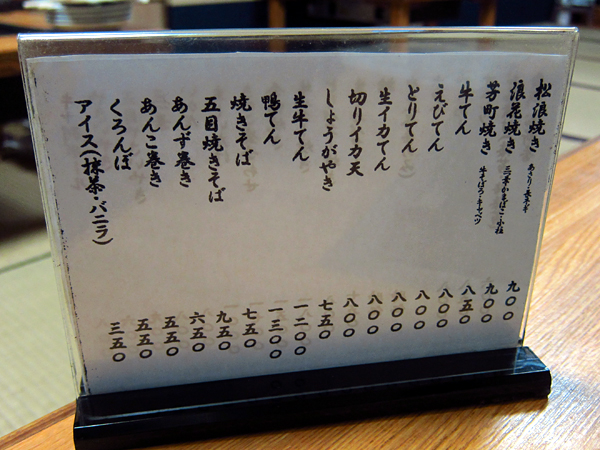 松浪焼き あさり・長ネギ 九〇〇
浪花焼き 三つ葉・かまぼこ・小柱 九〇〇
芳町焼き 牛そぼろ・キャベツ 八五〇
牛てん 八〇〇
えびてん 八〇〇
とりてん 八〇〇
生イカてん 八〇〇
切りイカ天 八〇〇
しょうがやき 七五〇
生牛てん 一二〇〇
鴨てん 一三〇〇
焼きそば 七五〇
五目焼きそば 九五〇
あんず巻き 六五〇
あんこ巻き 五五〇
くろんぼ 五五〇
アイス(抹茶・バニラ) 三五〇